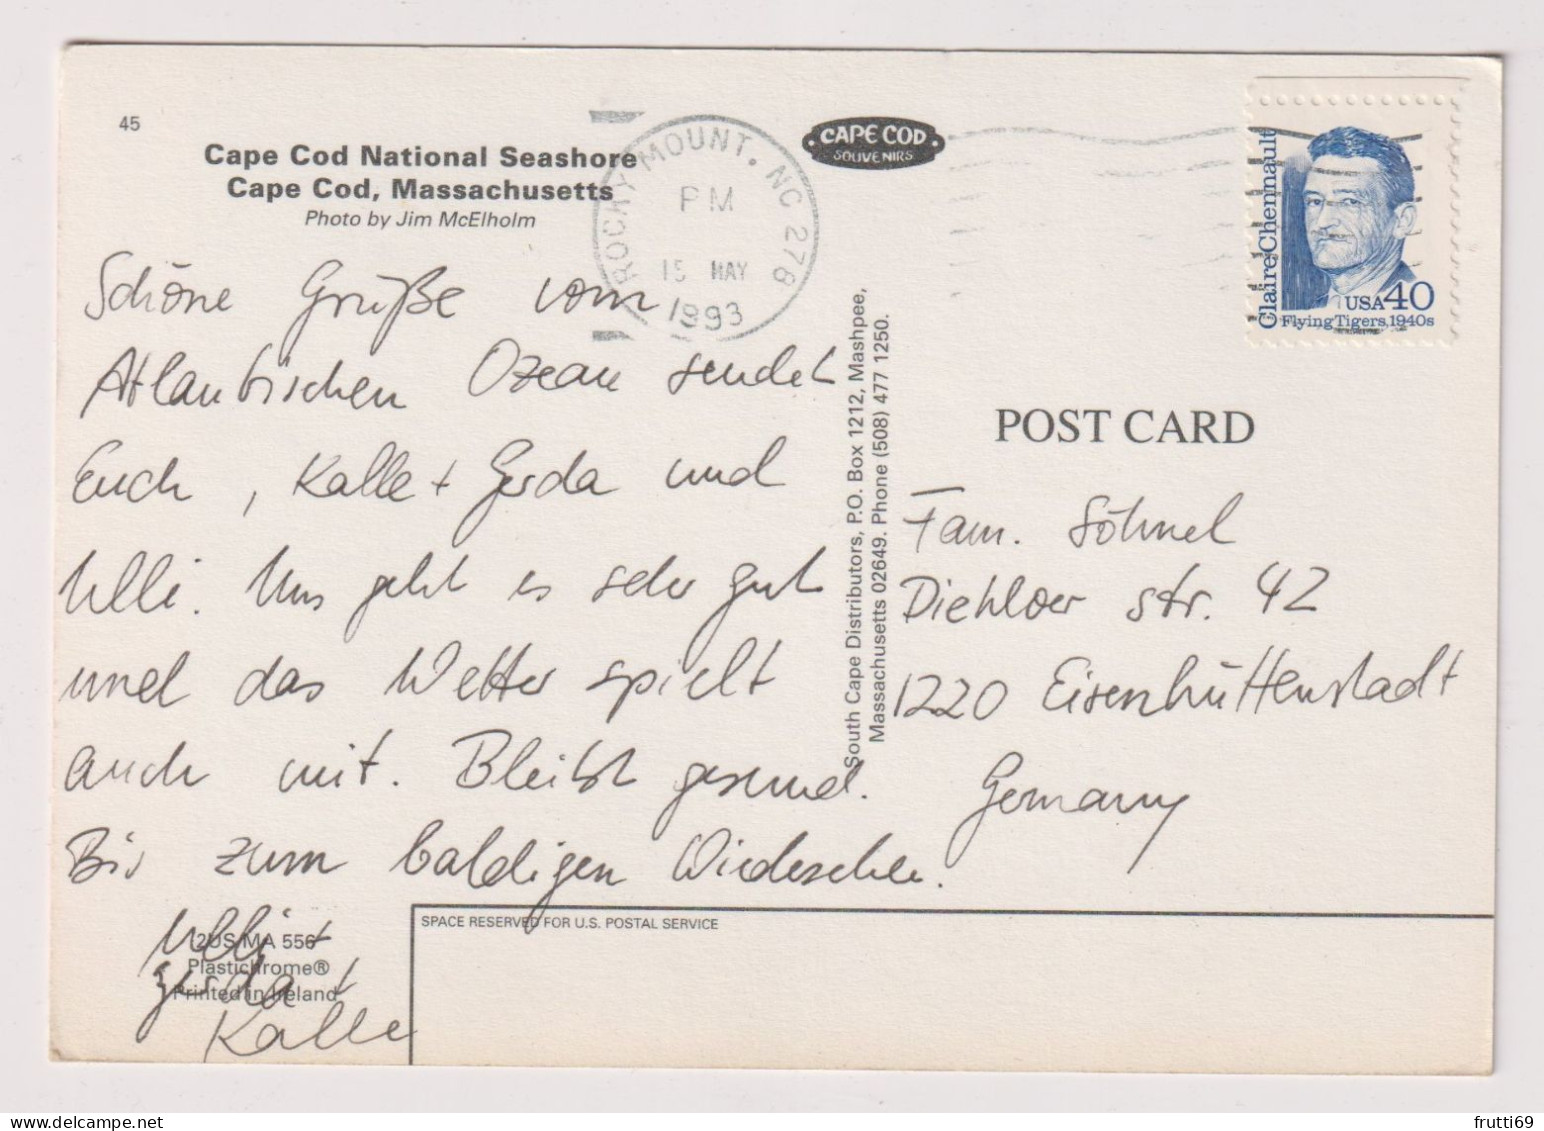 45
Cape Cod National Seashore
Cape Cod, Massachusetts
Photo by Jim McElholm
CAPE COD
SOUVENIRS
ROCKY MOUNT, NC 278
PM
15 MAY
1993
Claire Chennault
USA 40
Flying Tigers, 1940s
POST CARD
Schöne Grüße vom
Atlantischen Ozean sendet
Euch, Kalle + Gerda und
Ulli. Uns geht es sehr gut
und das Wetter spielt
auch mit. Bleibt gesund.
Bis zum baldigen Wiedersehen.
Ulli +
Gerda +
Kalle
South Cape Distributors, P.O. Box 1212, Mashpee,
Massachusetts 02649. Phone (508) 477 1250.
Fam. Söhnel
Diehloer Str. 42
1220 Eisenhüttenstadt
Germany
SPACE RESERVED FOR U.S. POSTAL SERVICE
2US MA 556
Plastichrome®
Printed in Ireland
frutti69